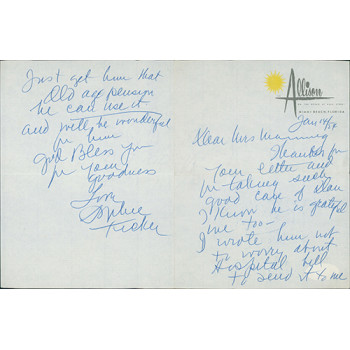 Allison
MIAMI BEACH, FLORIDA
Jan 14/54
Dear Mrs Manning
Thanks for
your letter and
for taking such
good care of
I know he is grateful
me too—
I wrote him not
to worry about
Hospital bill
to send it to me
Just get him that
Old age pension
he can use it
and will be wonderful
for him
God Bless you
for your
goodness
Love
Sophie
Tucker